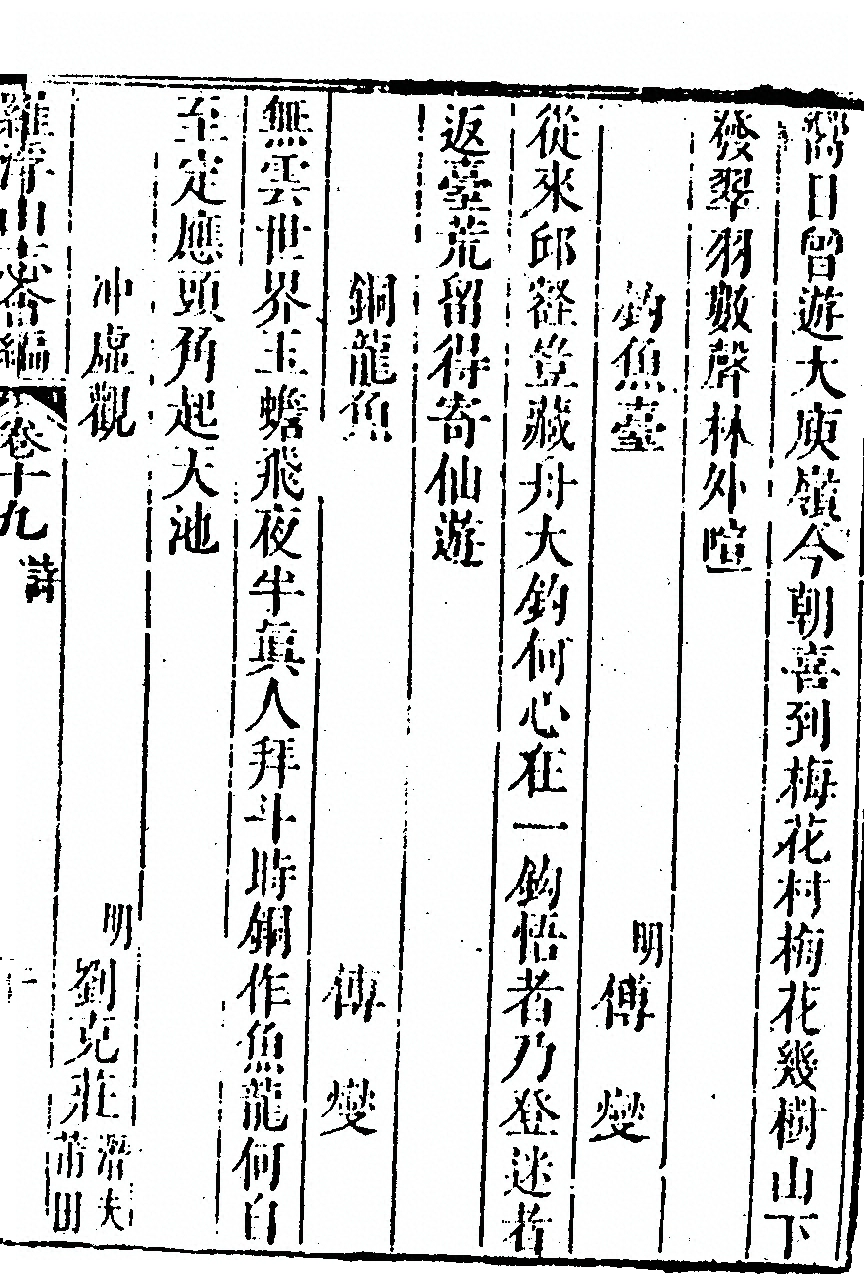 舊日曾遊大庾嶺今朝喜到梅花村梅花幾樹山下
發翠羽數聲林外喧
釣魚臺
明傅燮
從來邱壑豈藏舟大釣何心在一鈎悟者乃登迷者
返臺荒留得寄仙遊
銅龍魚
傅燮
無雲世界玉蟾飛夜半眞人拜斗時銅作魚龍何自
至定應頭角起天池
冲虛觀
明劉克莊潛夫莆田
羅浮山志會編
卷十九
詩